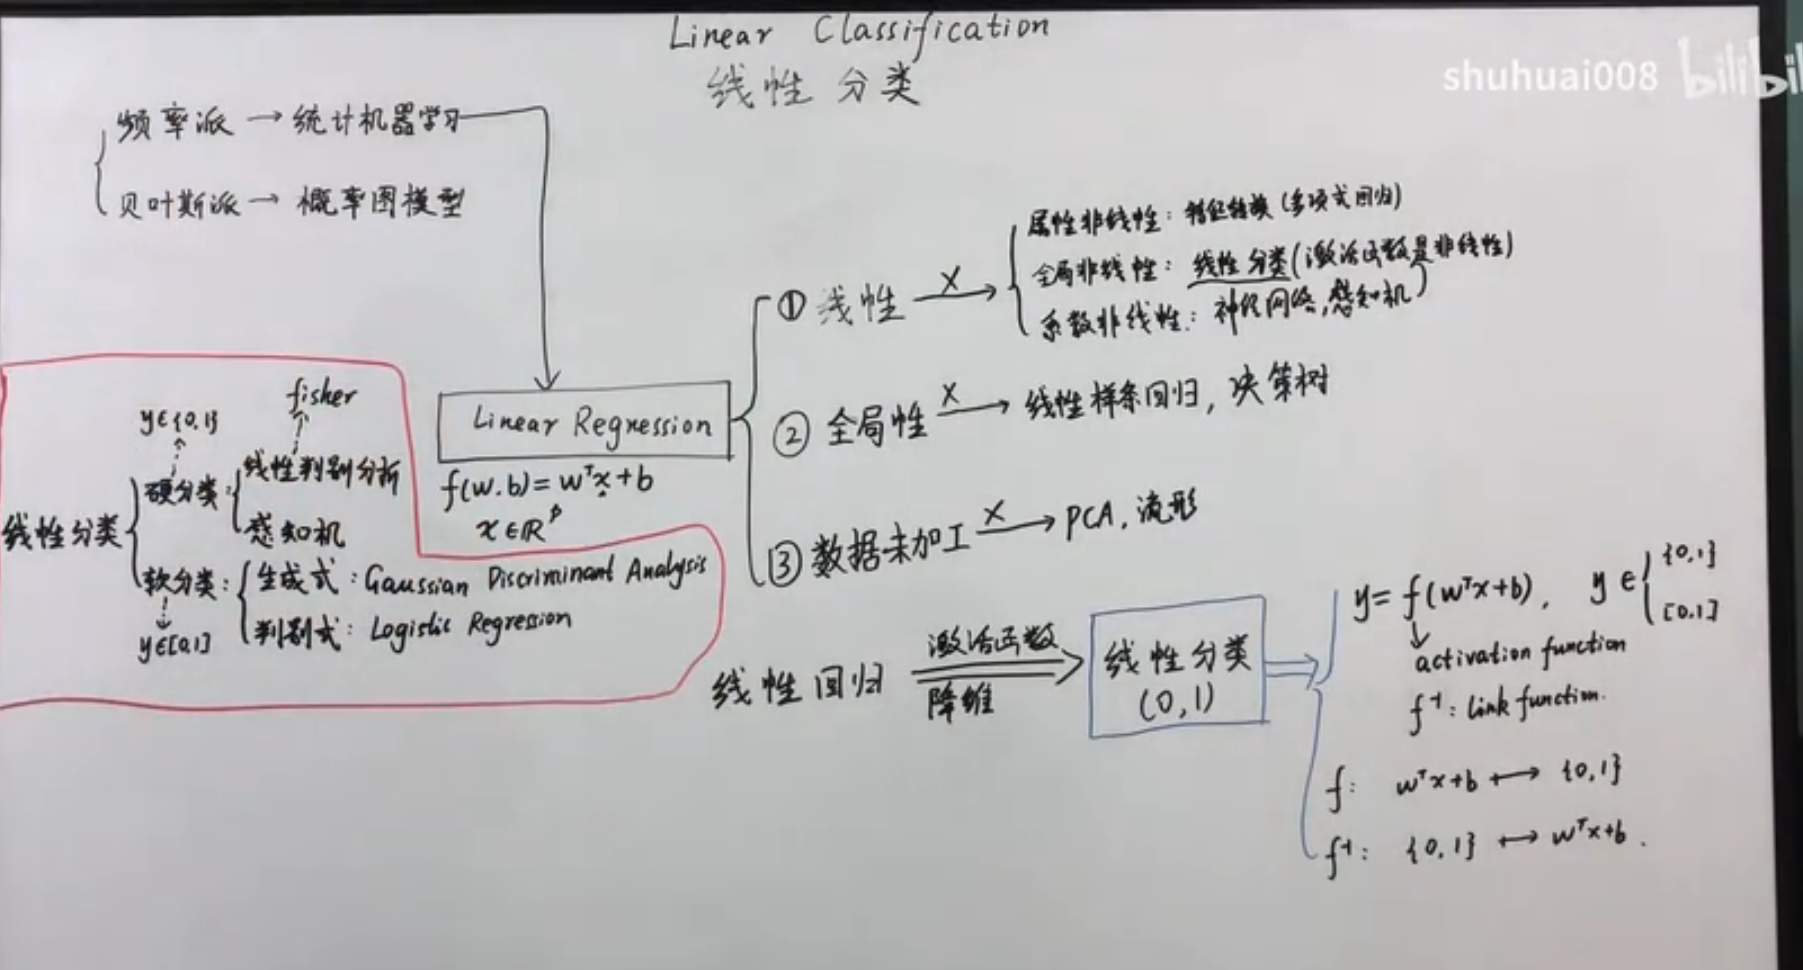 Linear Classification
线性分类
shuhuai008 bilibil
频率派 → 统计机器学习
贝叶斯派 → 概率图模型
Linear Regression
f(w.b)=wᵀx+b
x∈ℝᵖ
① 线性 X→
属性非线性：特征转换(多项式回归)
全局非线性：线性分类(激活函数是非线性)
系数非线性：神经网络,感知机
② 全局性 X→ 线性样条回归，决策树
③ 数据未加工 X→ PCA，流形
线性分类
y∈{0,1}
硬分类：
fisher
线性判别分析
感知机
软分类：
y∈[0,1]
生成式：Gaussian Discriminant Analysis
判别式：Logistic Regression
线性回归
激活函数
降维
线性分类
(0,1)
y=f(wᵀx+b), y∈
{0,1}
[0,1]
activation function
f⁻¹: link function.
f: wᵀx+b ↦ {0,1}
f⁻¹: {0,1} ↦ wᵀx+b.